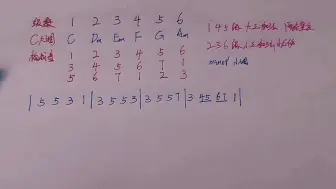 级数 1 2 3 4 5 6
C大调 C Dm Em F G Am
1 2 3 4 5 6
3 4 5 6 7 1
5 6 7 1 2 3
1 4 5 级 大三和弦
2 3 6 级 小三和弦
| 5 5 3 1 | 3 5 5 3 | 3 5 5 7 | 3 45 67 1 |